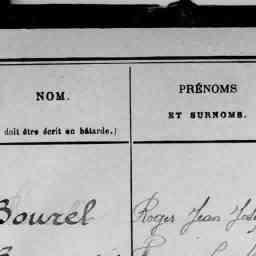 NOM.
doit être écrit en bâtarde.)
PRÉNOMS
ET SURNOMS.
Bourel
Roger Jean